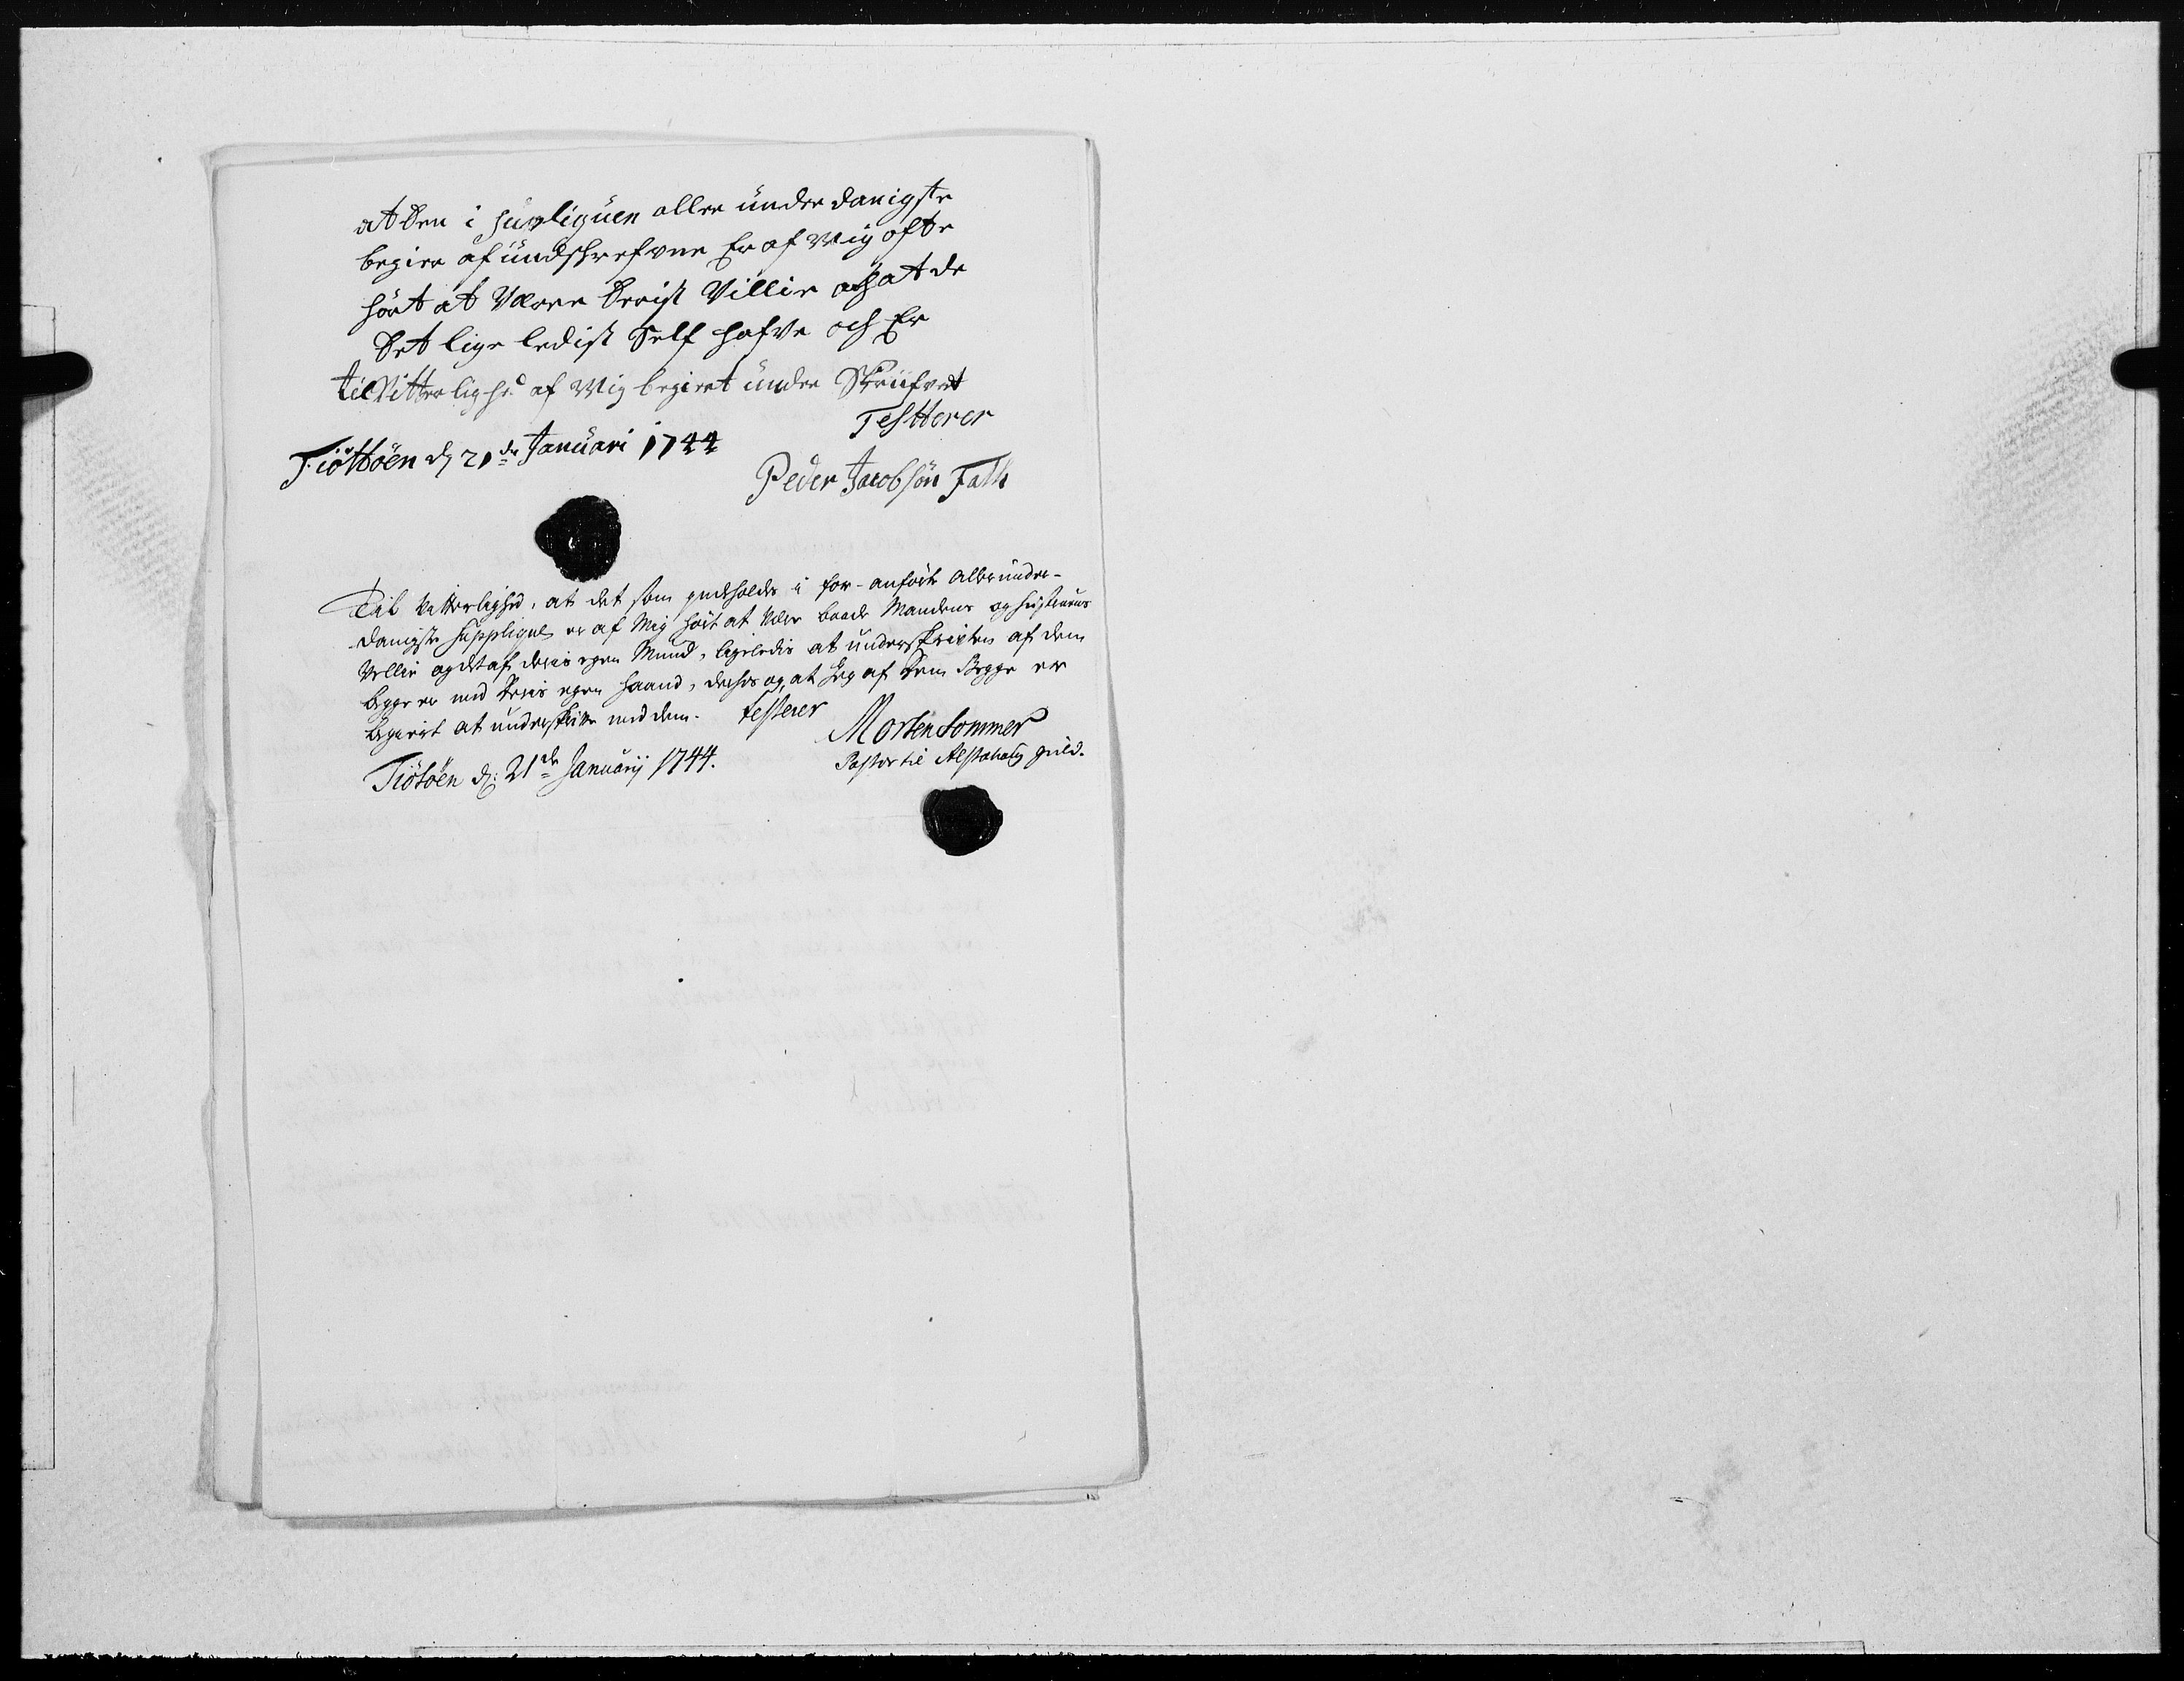 at den i supliquen aller under danigste
begier af undskrefvne Er af Mig ofte
hört at Være Dreist Villie och at de
Det lige ledist Self hafve och Er
til Vitterlighed af Mig begiert under Skrüfvet
Testterer
Tiöttöen d 21de Januari 1744
Peder Jacobsön Falk
Til Vitterlighed, at det som indeholdes i for-anförte Allerunder-
danigste Supplique er af Mig hört at være baade Mandens og Hustruens
Villie og det af deris egen Mund, ligeledis at underskriften af dem
begge er med deris egen Haand, derhos og, at Jeg af dem Begge er
begiert at underskrive med dem. testerer
Morten Sommer
Pastor til Alstahoug Gield.
Tiötöen d: 21de Januarij 1744.